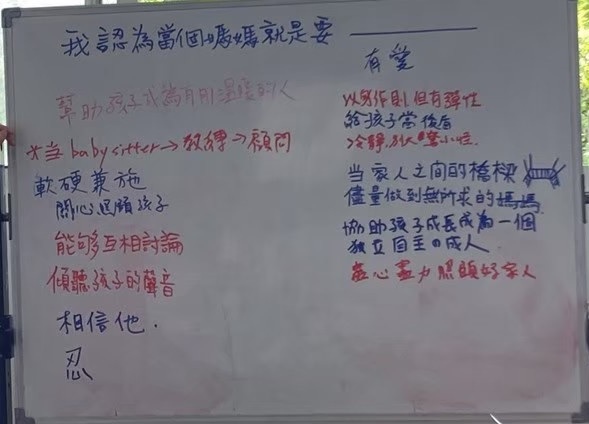 我認為當個媽媽就是要
有愛
幫助孩子成為有用溫暖的人
*當 babysitter→教練→顧問
軟硬兼施
關心照顧孩子
能够互相討論
傾聽孩子的聲音
相信他.
忍
以身作則但有彈性
給孩子當後盾
冷靜
當家人之間的橋樑
儘量做到無所求的媽媽
協助孩子成長成為一個
獨立自主の成人.
盡心盡力照顧好家人